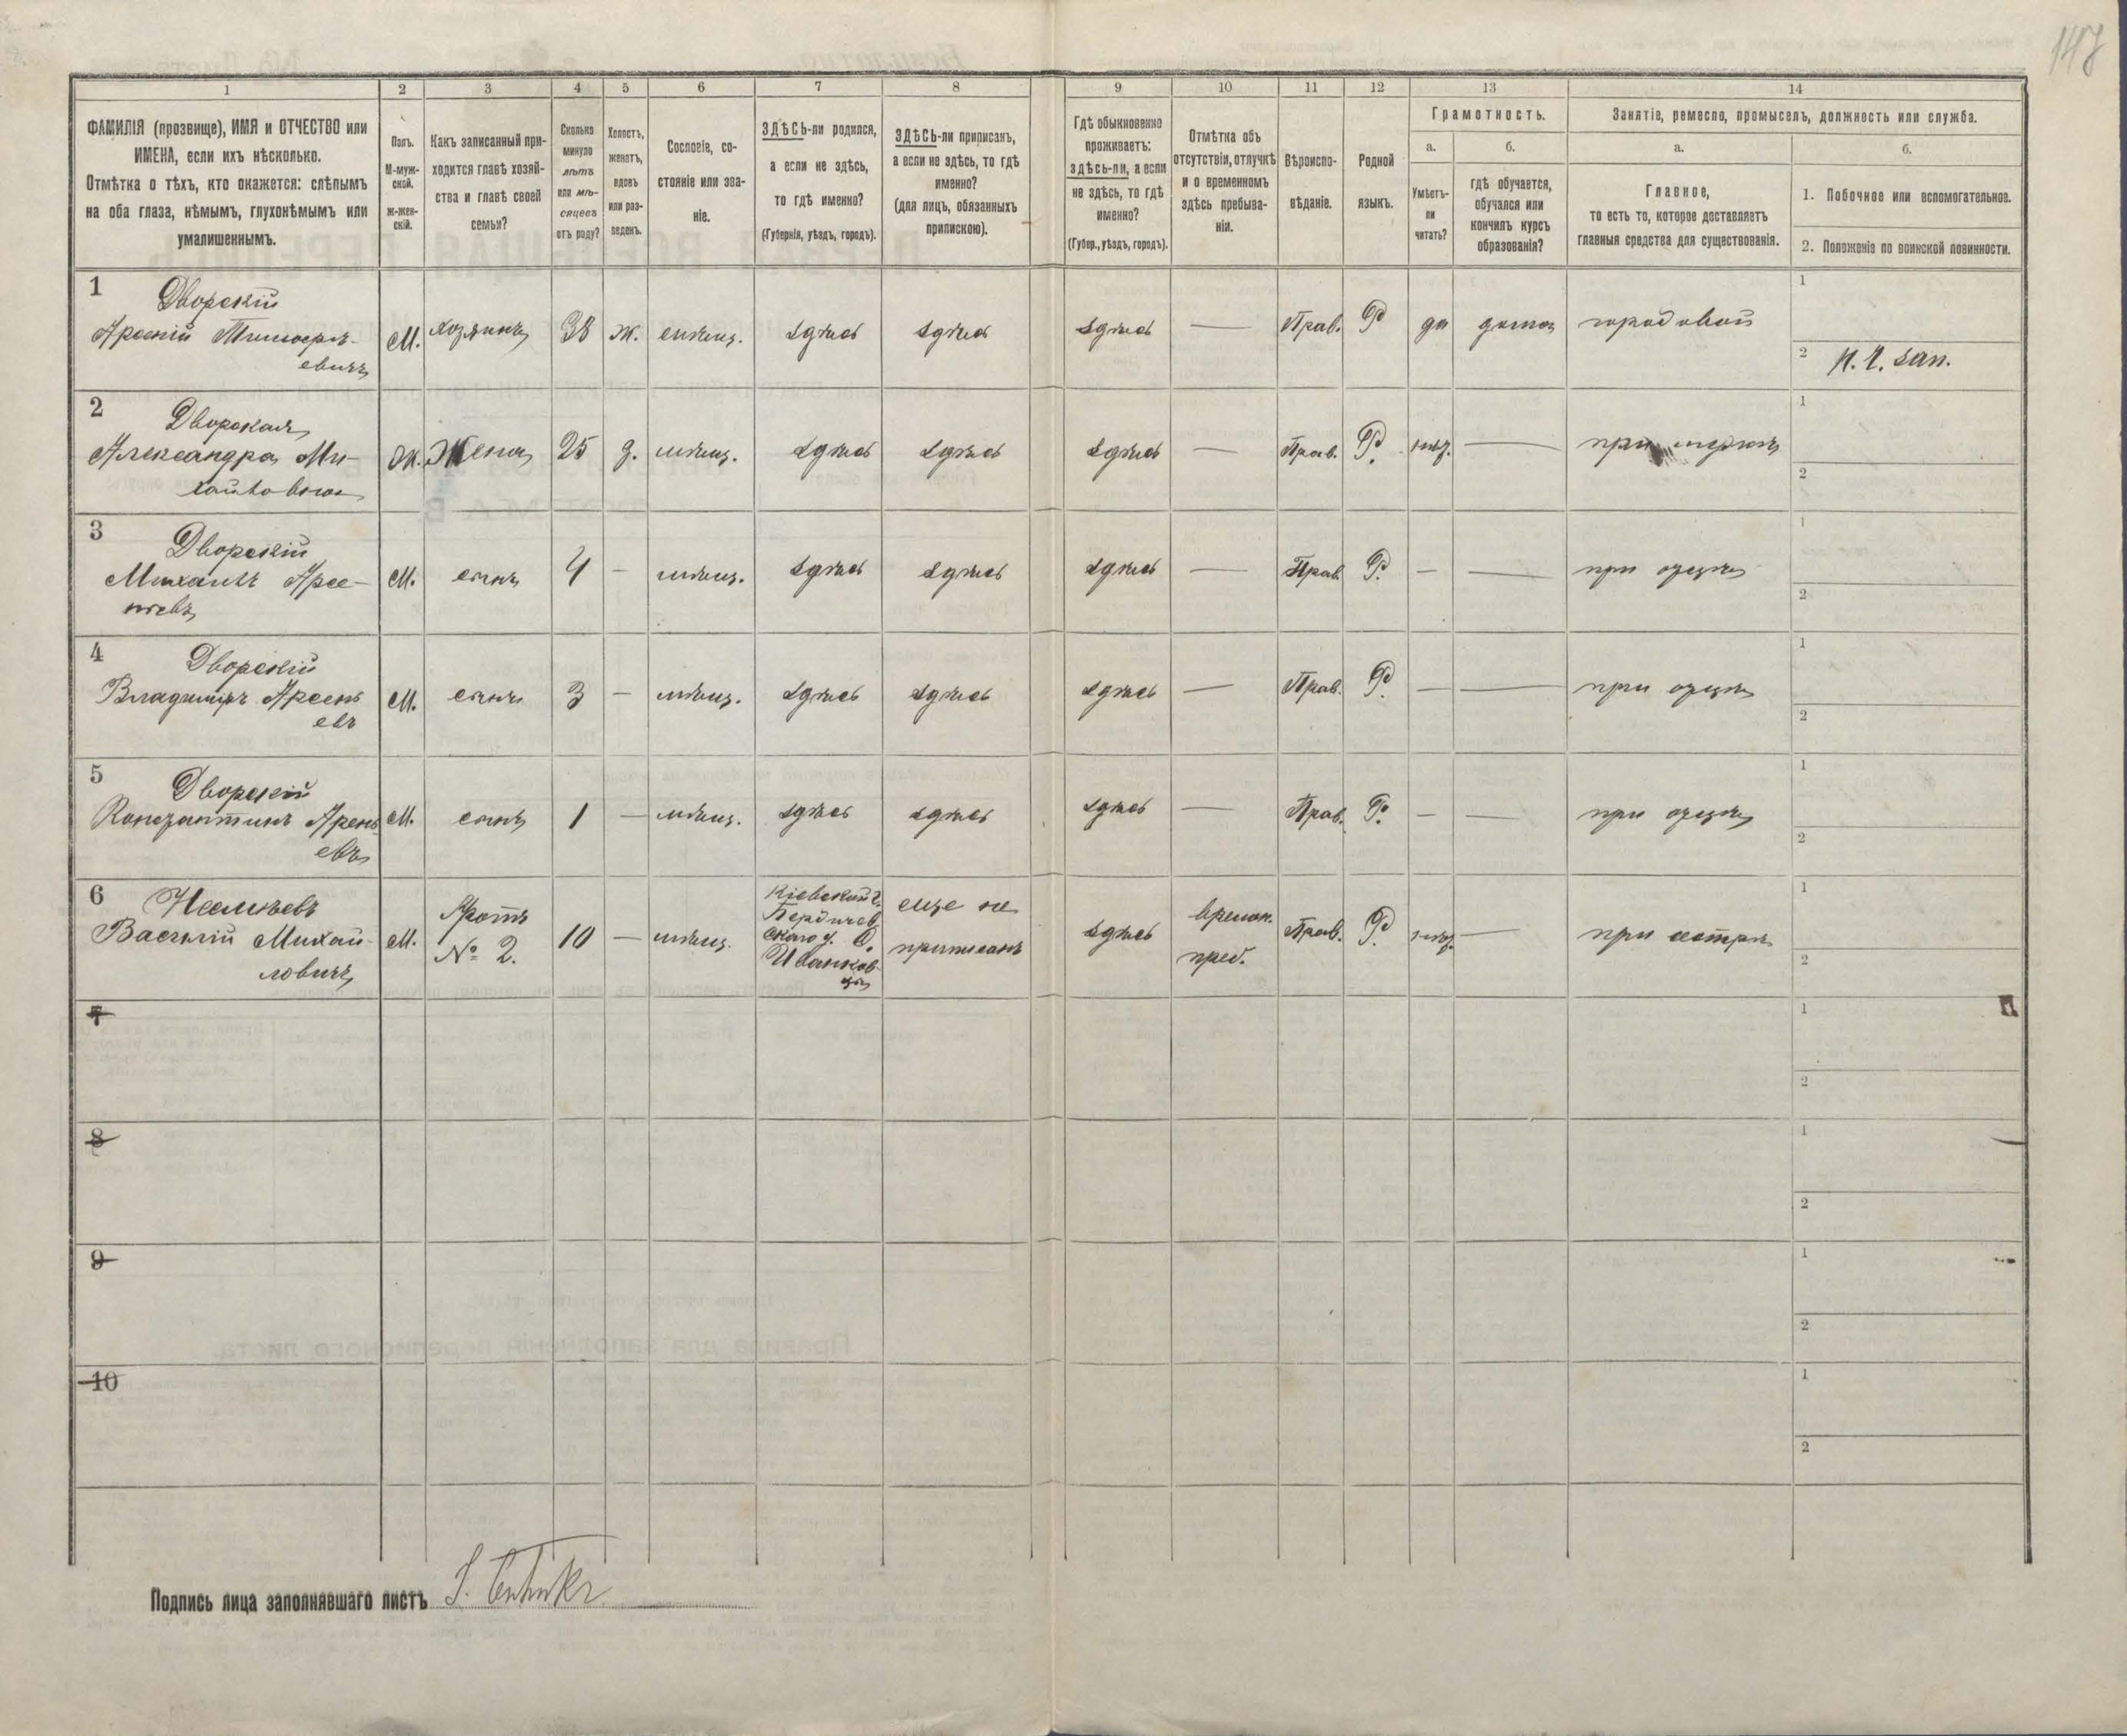 147
1
2
3
4
5
6
7
8
9
10
11
12
13
14
ФАМИЛІЯ (прозвище), ИМЯ и ОТЧЕСТВО или
ИМЕНА, если ихъ нѣсколько.
Отмѣтка о тѣхъ, кто окажется: слѣпымъ
на оба глаза, нѣмымъ, глухонѣмымъ или
умалишеннымъ.
Полъ.
М-муж-
ской.
Ж-жен-
скій.
Какъ записанный при-
ходится главѣ хозяй-
ства и главѣ своей
семьи?
Сколько
минуло
лѣтъ
или мѣ-
сяцевъ
отъ роду?
Холостъ,
женатъ,
вдовъ
или раз-
веденъ.
Сословіе, со-
стояніе или зва-
ніе.
ЗДѢСЬ-ли родился,
а если не здѣсь,
то гдѣ именно?
(Губернія, уѣздъ, городъ).
ЗДѢСЬ-ли приписанъ,
а если не здѣсь, то гдѣ
именно?
(для лицъ, обязанныхъ
припискою).
Гдѣ обыкновенно
проживаетъ:
здѣсь-ли, а если
не здѣсь, то гдѣ
именно?
(Губер., уѣздъ, городъ).
Отмѣтка объ
отсутствіи, отлучкѣ
и о временномъ
здѣсь пребыва-
ніи.
Вѣроиспо-
вѣданіе.
Родной
языкъ.
Грамотность.
а.
Умѣетъ-
ли
читать?
б.
гдѣ обучается,
обучался или
кончилъ курсъ
образованія?
Занятіе, ремесло, промыселъ, должность или служба.
а.
Главное,
то есть то, которое доставляетъ
главныя средства для существованія.
б.
1. Побочное или вспомогательное.
2. Положеніе по воинской повинности.
1
Дворскій
Арсеній Тимоѳе-
евичъ
М. хозяинъ 38 ж. мѣщ. здѣсь здѣсь здѣсь — Прав. Р да дома городовой
1
2 н. ч. зап.
2
Дворская
Александра Ми-
хайловна
Ж. Жена 25 з. мѣщ. здѣсь здѣсь здѣсь — Прав. Р. — при мужѣ
1
2
3
Дворскій
Михаилъ Арсе-
ньевъ
М. сынъ 4 — мѣщ. здѣсь здѣсь здѣсь — Прав. Р. — — при отцѣ
1
2
4
Дворскій
Владиміръ Арсень
евъ
М. сынъ 3 — мѣщ. здѣсь здѣсь здѣсь — Прав. Р. — — при отцѣ
1
2
5
Дворскій
Константинъ Арсень
евъ
М. сынъ 1 — мѣщ. здѣсь здѣсь здѣсь — Прав. Р. — — при отцѣ
1
2
6
Василій Михай-
ловичъ
М.
братъ
№ 2.
10 — мѣщ.
Кіевской г.
Бердичев
скаго у. с.
Иванков
цы
еще не
приписанъ
здѣсь
времен.
преб.
Прав. Р. — при сестрѣ
1
2
7
1
2
8
1
2
9
1
2
10
1
2
Подпись лица заполнявшаго листъ